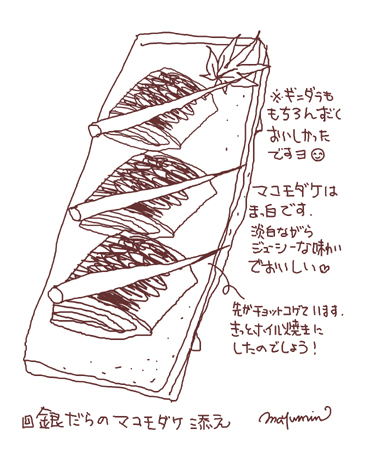 ※ギンダラも
もちろんすごく
おいしかった
ですヨ
マコモダケは
まっ白です.
淡白ながら
ジューシーな味わい
でおいしい♡
先がチョットコゲています.
きっとホイル焼きに
したのでしょう!
回銀だらのマコモダケ添え
mayumin